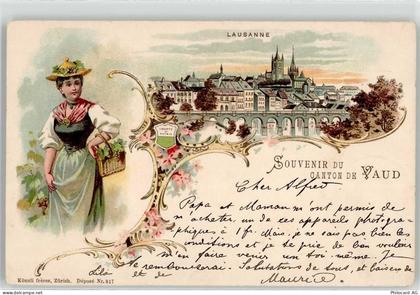 LAUSANNE
LIBERTÉ ET PATRIE
SOUVENIR DU
CANTON DE VAUD
Cher Alfred
Papa et Maman m'ont permis de
m'acheter, un de ces appareils photogra-
phiques à 1f. Mais, je ne sais pas bien les
conditions et je te prie de bien vouloir
m'en faire venir un toi même. Je
te rembourserai. Salutations de tous, et baisers de
Lila et de Maurice
Künzli frères, Zürich. Déposé Nr. 817